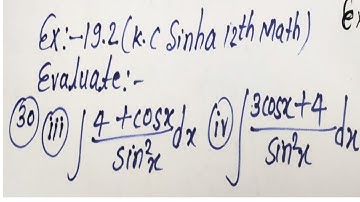 Ex:-19.2 (K.C Sinha 12th Math)
Evaluate:-
(30) (iii) ∫ (4 + cosx)/(sin²x) dx (iv) ∫ (3cosx+4)/(sin²x) dx